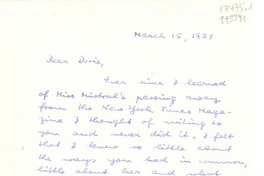 March 15, 1957
Dear Doris,
Ever since I learned
of Miss Mistral's passing away
from the New York Times Maga-
zine I thought of writing to
you and never did it. I felt
that I knew so little about
the ways you had in common,
little about her and what